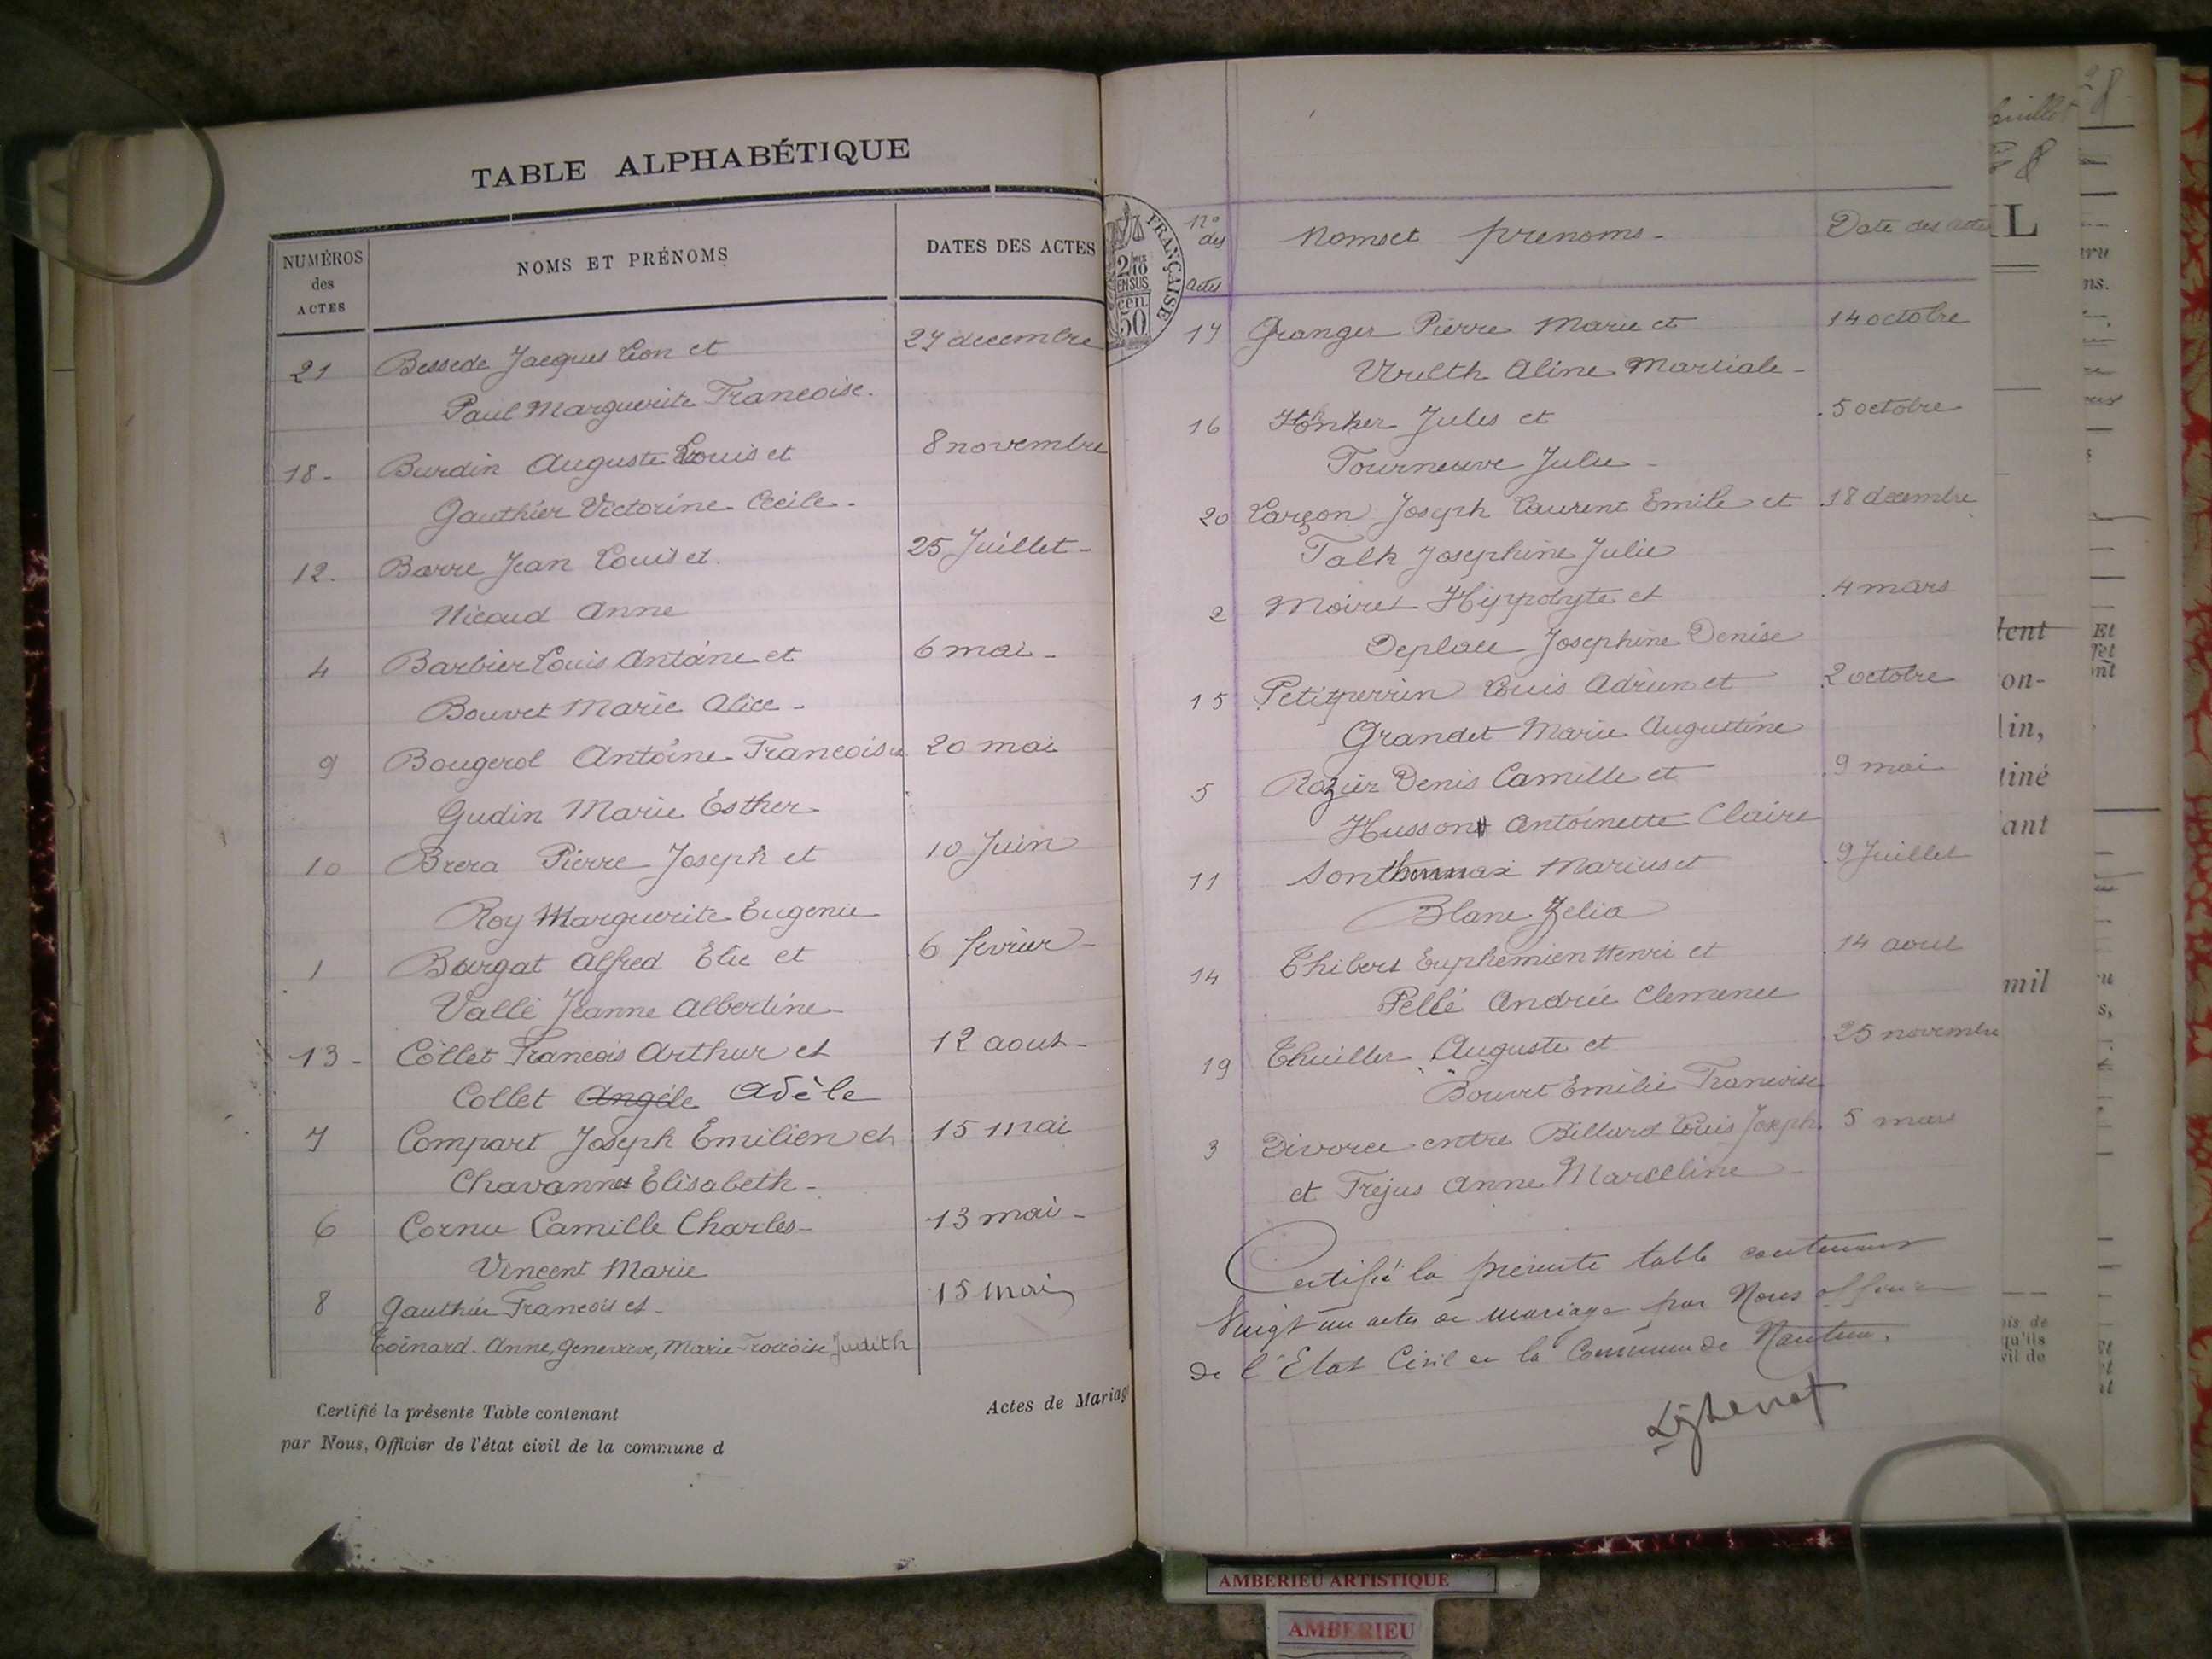 TABLE ALPHABÉTIQUE
NUMÉROS des ACTES
NOMS ET PRÉNOMS
DATES DES ACTES
21 Bessede Jacques Léon et 27 decembre
Paul Marguerite Francoise.
18- Burdin Auguste Louis et 8 novembre
Gauthier Victorine Cecile-
12. Barre Jean Louis et. 25 Juillet-
Nicoud Anne
4 Barbier Louis Antoine et 6 mai-
Bouvet Marie Alice-
9 Bougerol Antoine Francois et 20 mai
Gudin Marie Esther
10 Brera Pierre Joseph et 10 Juin
Roy Marguerite Eugenie
1 Burgat Alfred Elie et 6 fevrier-
Vallé Jeanne Albertine-
13- Collet Francois Arthur et 12 aout-
Collet Angéle Adèle
7 Compart Joseph Emilien et 15 mai
Chavannes Elisabeth-
6 Cornu Camille Charles- 13 mai-
Vincent Marie
8 Gauthier Francois et- 15 mai
Toinard. Anne, Genevieve, Marie Francoise Judith
Certifié la présente Table contenant Actes de Mariag
par Nous, Officier de l'état civil de la commune d
FRANÇAISE
2/10
EN SUS
50
N° des actes
Noms et prenoms-
Date des actes
17 Granger Pierre Marie et 14 octobre
Aline Martiale-
16 Jules et 5 octobre
Tourneuve Julie-
20 Larçon Joseph Laurent Emile et 18 decembre
Falk Josephine Julie
2 Moiret Hippolyte et 4 mars
Deplace Josephine Denise
15 Petitperrin Louis Adrien et 2 octobre
Grandet Marie Augustine
5 Rozier Denis Camille et 9 mai
Husson Antoinette Claire
11 Sonthonnax Marius et 9 Juillet
Blanc Zelia
14 Thibert Euphemien Henri et 14 aout
Pellé Andrée Clemence
19 Thuillier Auguste et 25 novembre
Bouvet Emilie Francoise
3 Divorce entre Billard Louis Joseph 5 mars
et Frejus Anne Marceline-
Certifié la présente table contenant
Vingt un actes de mariage par Nous officier
de l'Etat Civil de la Commune de Nantua.
AMBERIEU ARTISTIQUE
AMBERIEU